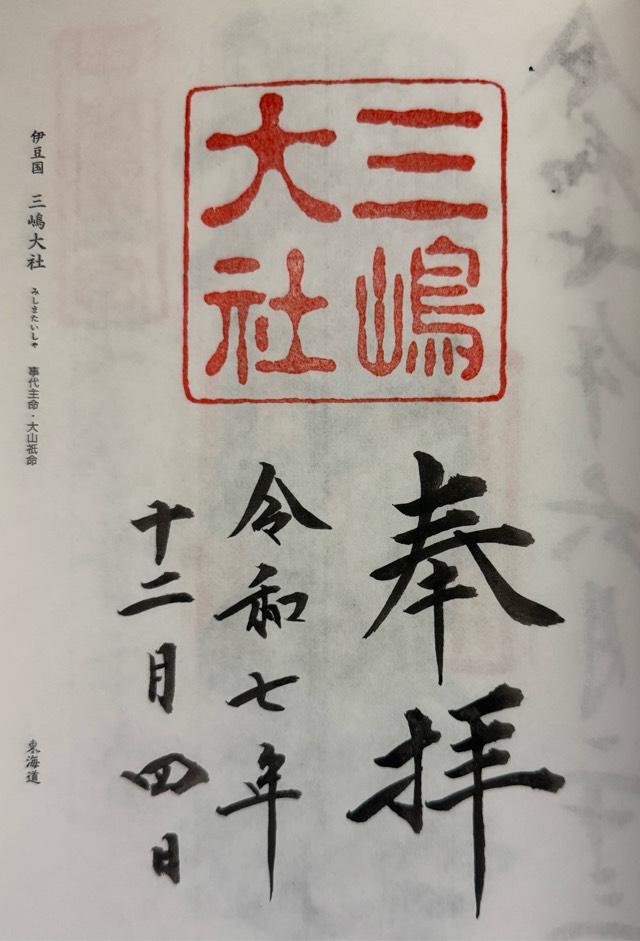 三嶋
大社
奉拝
令和七年
十二月四日
伊豆国 三嶋大社 みしまたいしゃ 事代主命・大山祇命
東海道